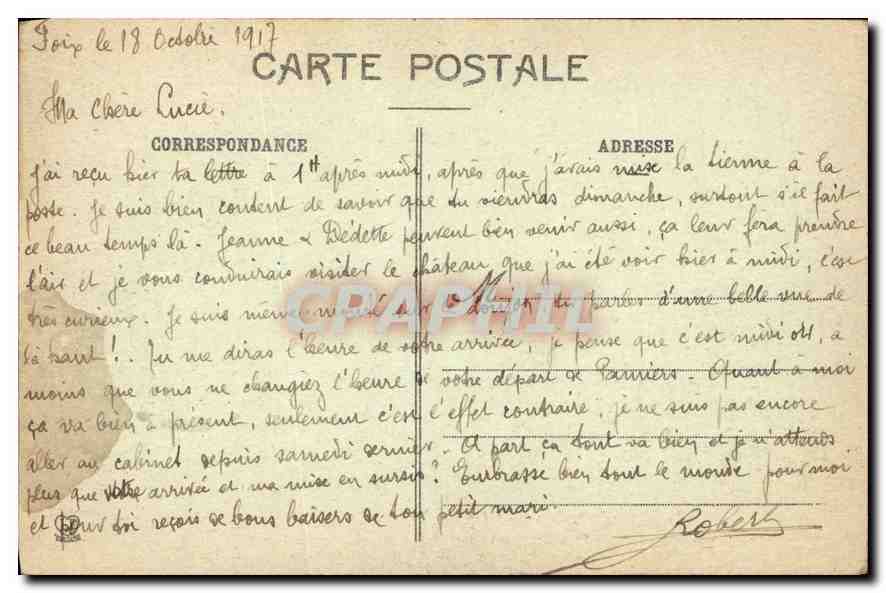 Foix le 18 Octobre 1917
CARTE POSTALE
Ma Chère Lucie.
CORRESPONDANCE
ADRESSE
J'ai reçu hier ta lettre à 1H après midi, après que j'avais mise la tienne à la
poste. Je suis bien content de savoir que tu viendras dimanche, surtout s'il fait
ce beau temps là. Jeanne & Dédette peuvent bien venir aussi, ça leur fera prendre
l'air et je vous conduirais visiter le château que j'ai été voir hier à midi, c'est
très curieux. Je suis même monté sur le donjon tu parles d'une belle vue de
là haut! Tu me diras l'heure de votre arrivée, je pense que c'est midi 01, a
moins que vous ne changiez l'heure de votre départ de Pamiers. Quant à moi
ça va bien à présent, seulement c'est l'effet contraire, je ne suis pas encore
aller au cabinet depuis samedi dernier. A part ça tout va bien et je n'attends
plus que votre arrivée et ma mise en sursis? Embrasse bien tout le monde pour moi
et pour toi reçois de bons baisers de ton petit mari.
Robert
CPAPHIL